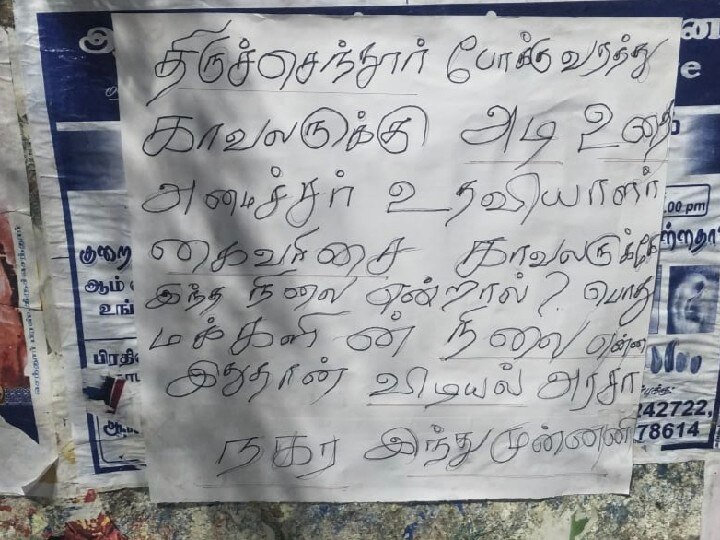 திருச்செந்தூர் போக்குவரத்து
காவலருக்கு அடி உதை
அமைச்சர் உதவியாளர்
கைவரிசை காவலருக்கே
இந்த நிலை என்றால்? பொது
மக்களின் நிலை என்ன
இதுதான் விடியல் அரசா
நகர இந்துமுன்னணி
.00 pm
குறை
ஆம்
உங்
242722,
78614